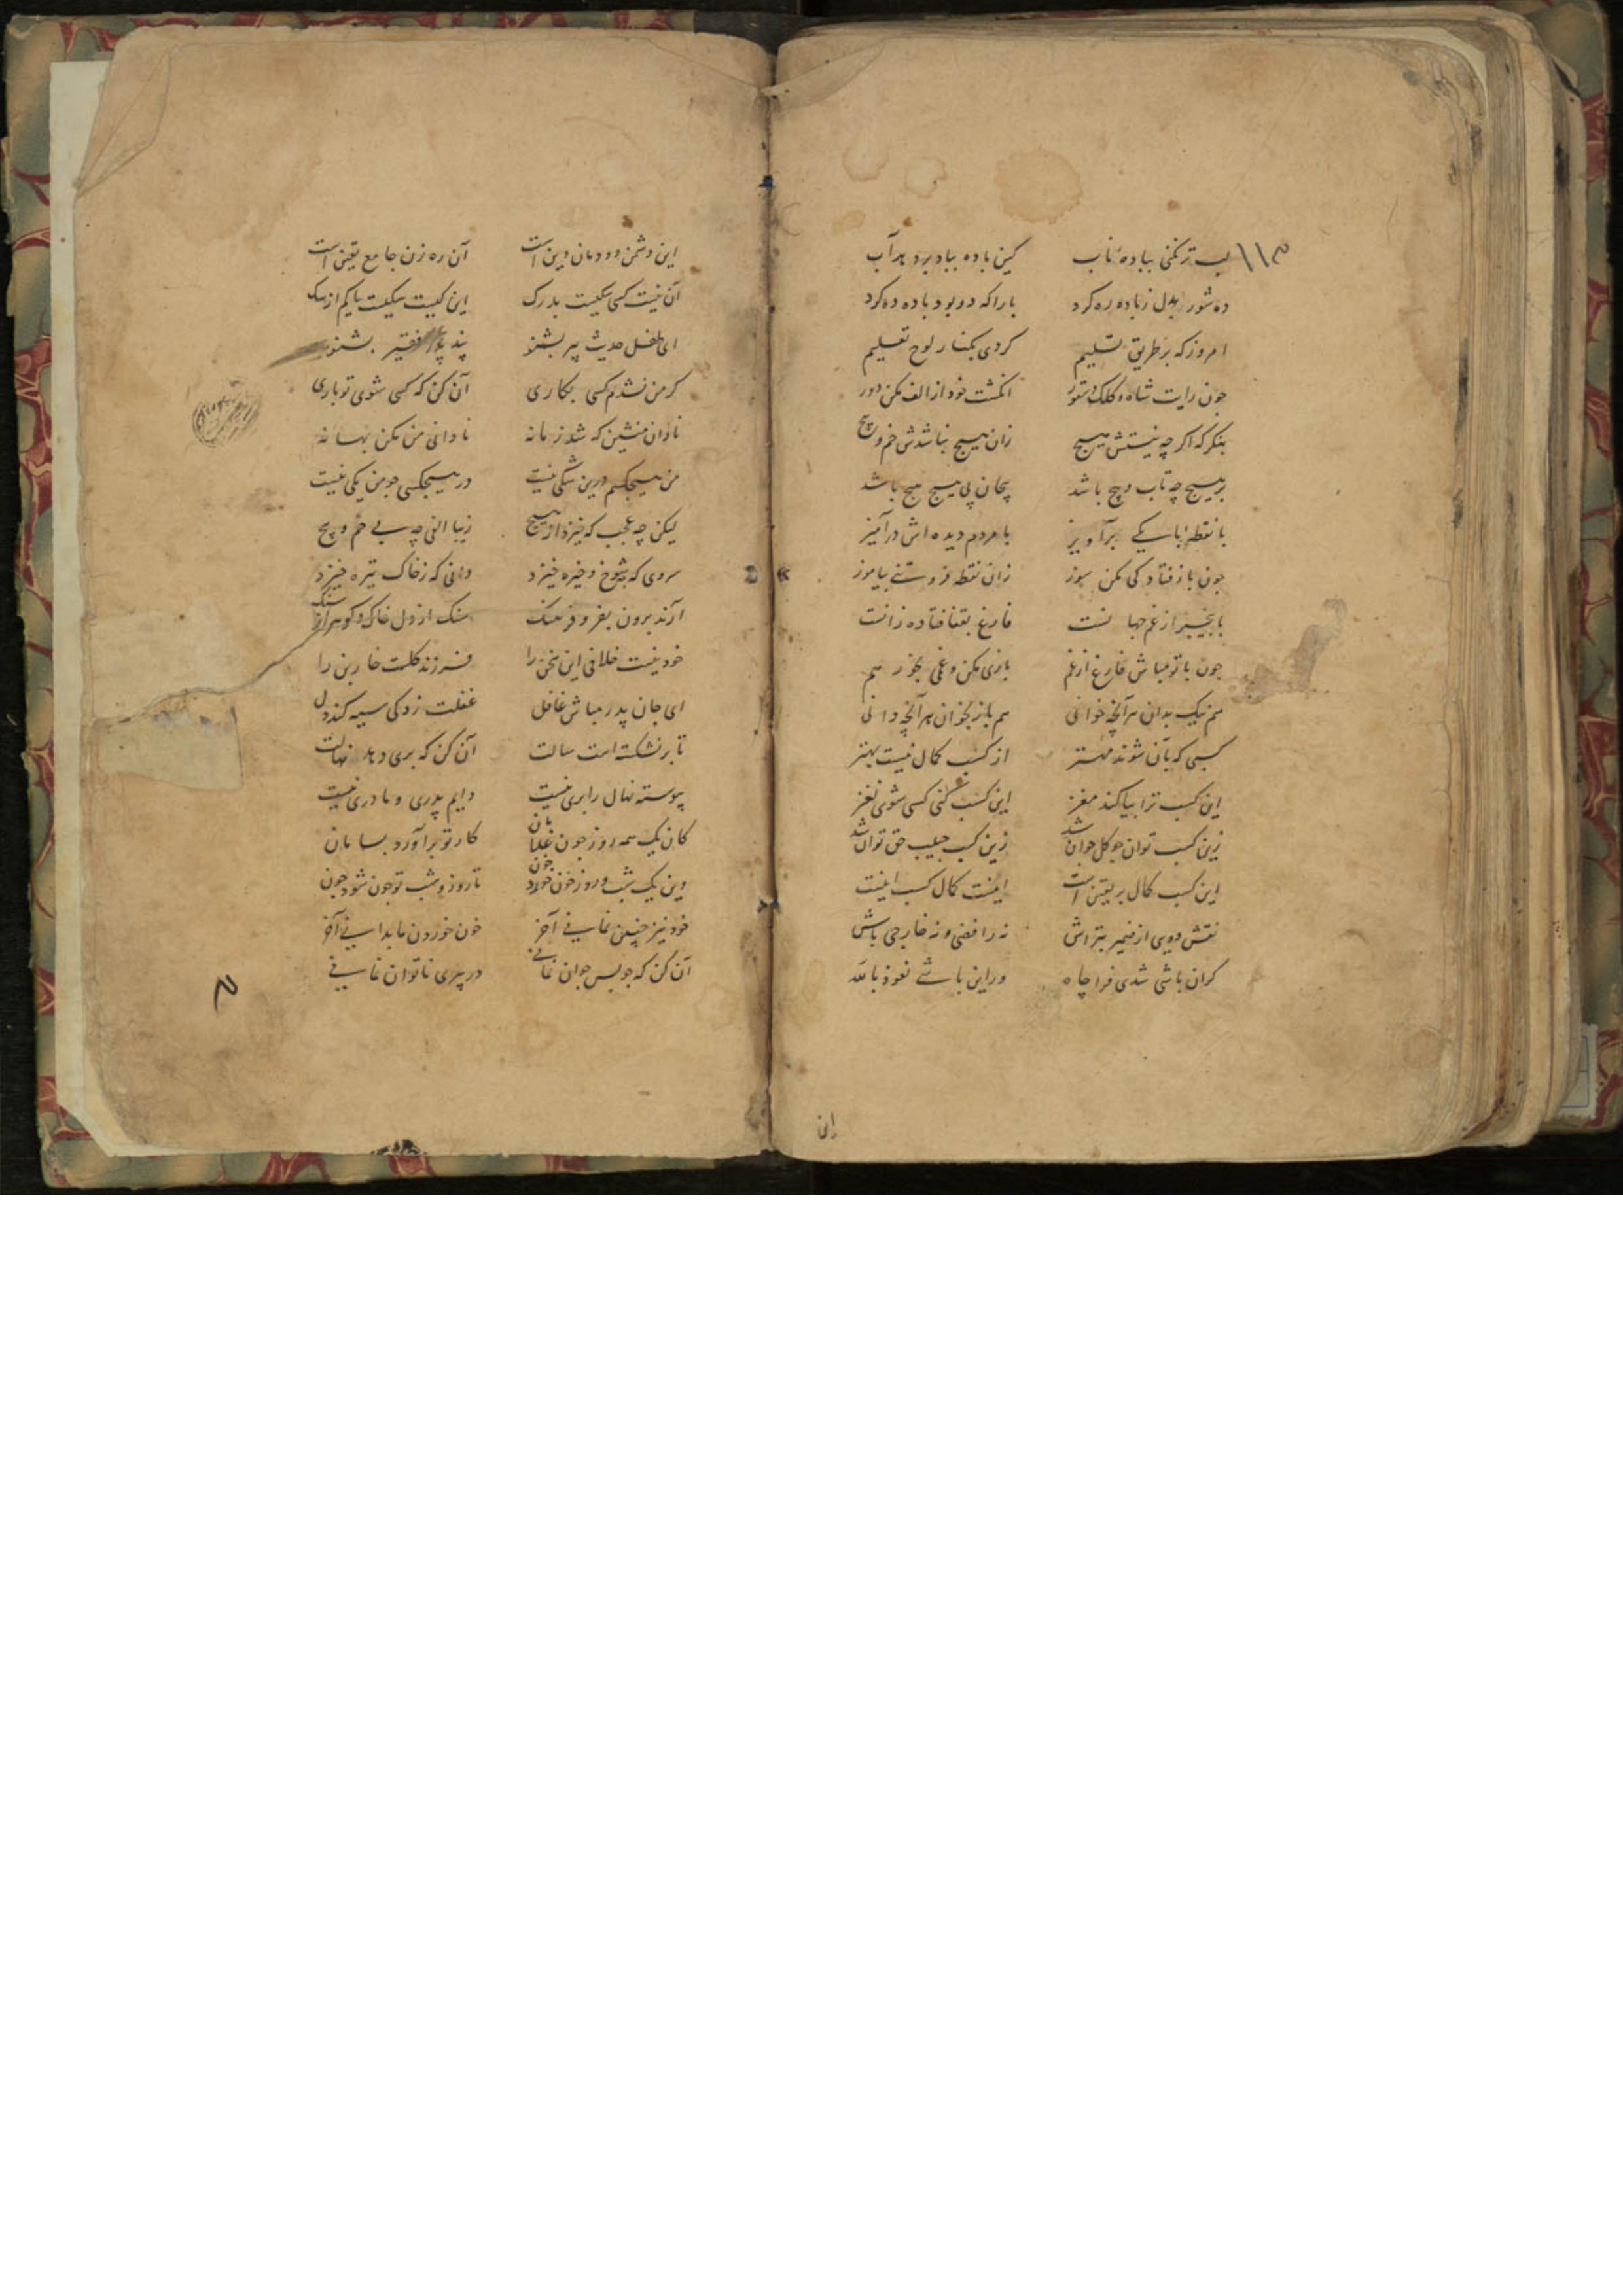 لب تر نکنی بباده ناب کین باده بباد بر دهد آب
ده شور بدل زباده ره کرد با را که دو بود باده ده کرد
امروز که بر طریق تسلیم کردی بکنار لوح تعلیم
جون رایت شاه و کلک دستور انکشت خود از الف مکن دور
بنکر که اکر چه نیستش هیچ زان هیچ نباشدش خم و پیچ
بر هیچ چه تاب و پیچ باشد پیچان پی هیچ هیچ باشد
با نقطه با یکی برآویز با مردم دیده اش درآمیز
جون باز فتادکی مکن سوز زان نقطه فروتنی بیاموز
با بیخبر از غم جهانست فارغ بقفا فتاده زانست
جون با تو مباش فارغ از غم بازی مکن و غمی بخور هم
هم نیک بدان هر آنچه خوانی هم باز بخوان هر آنچه دانی
کسبی که بآن شوند مهتر از کسب کمال نیست بهتر
این کسب ترا بیاکند مغز این کسب کنی کسی شوی نغز
زین کسب توان جو کل جوان شد زین کسب حبیب حق توان شد
این کسب کمال بر یقین است اینست کمال کسب اینست
نقش دویی از ضمیر بتراش نه رافضی و نه خارجی باش
کر آن باشی شدی فرا چاه ور این باشی نعوذ بالله
این
این دشمن دودمان دین است آن ره زن جامع یقین است
آن نیست کسی سکیست بدرک این کیست سکیست یا کم از سک
ای طفل حدیث پیر بشنو پند پدر فقیر بشنو
کر من نشدم کسی بکاری آن کن که کسی شوی تو باری
نادان منشین که شد زمانه نادانی من مکن بهانه
من هیچکسم درین شکی نیست در هیچکسی جو من یکی نیست
لیکن چه عجب که خیزد از هیچ زیبا الفی چه بی خم و پیچ
سروی که بشوخ و خیره خیزد دانی که زخاک تیره خیزد
آرند برون بفر و فرهنک سنک از دل خاک و کوهر از سنک
خود نیست خلافی این سخن را فرزند کلست خار بن را
ای جان پدر مباش غافل غفلت زدکی سیه کند دل
تا بر نشکسته است سالت آن کن که بری دهد نهالت
پیوسته نهال را بری نیست دایم پدری و مادری نیست
کان یک همه روز جون غلامان کار تو برآورد بسامان
وین یک شب و روز خون خورد جون تا روز و شب تو جون شود جون
خود نیز جنین نمانی آخر خون خوردن ما بدانی آخر
آن کن که جو بس جوان نمانی در پیری ناتوان نمانی